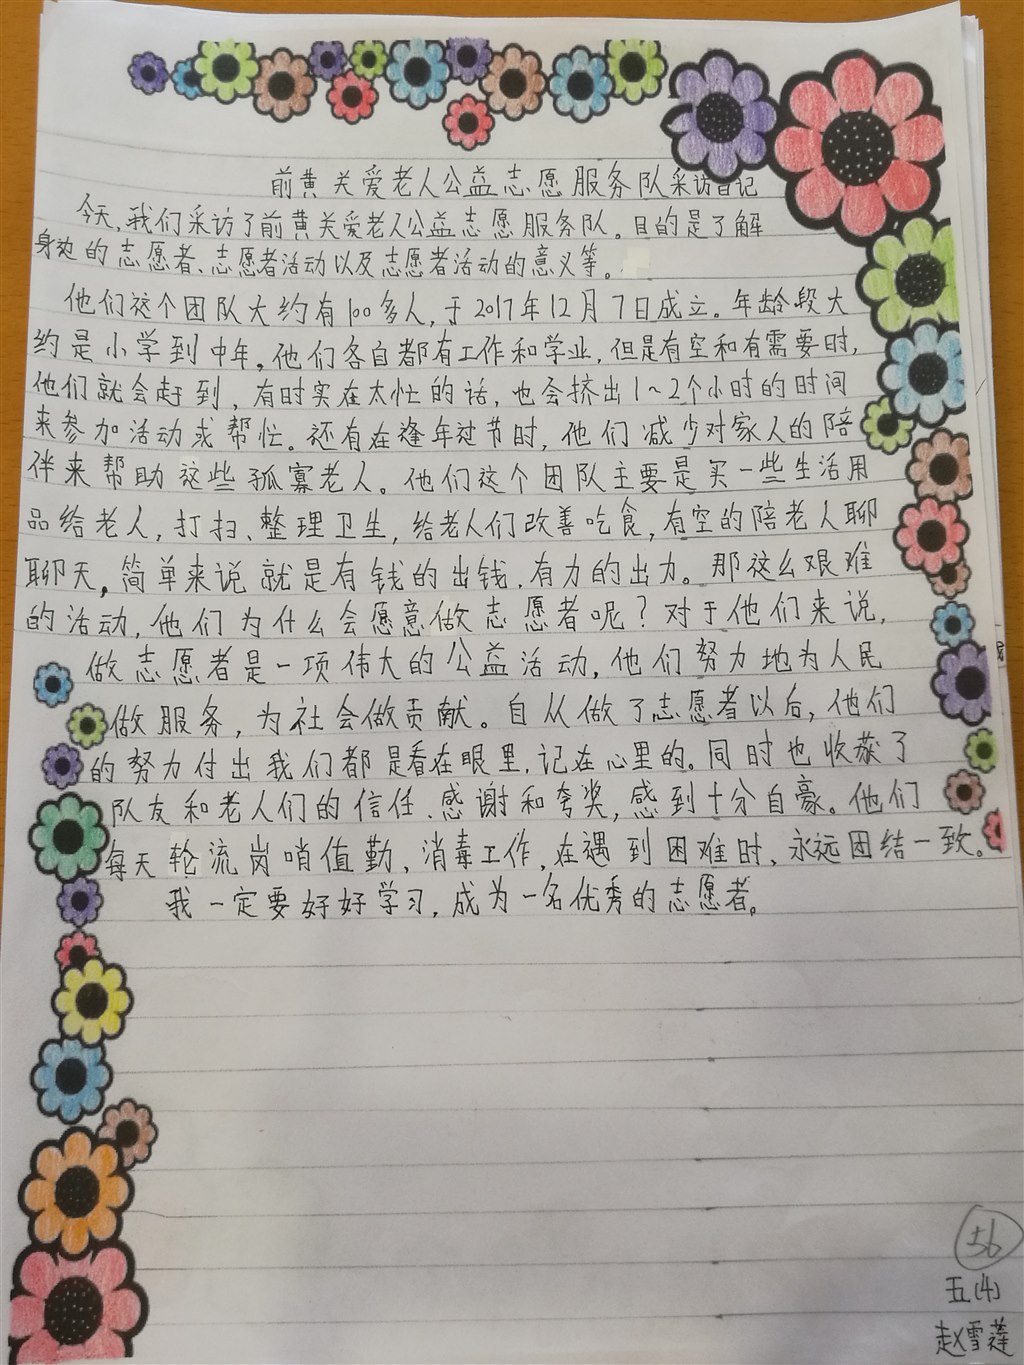 前黄关爱老人公益志愿服务队采访日记
今天,我们采访了前黄关爱老人公益志愿服务队。目的是了解
身边的志愿者、志愿者活动以及志愿者活动的意义等。
他们这个团队大约有100多人,于2017年12月7日成立。年龄段大
约是小学到中年。他们各自都有工作和学业,但是有空和有需要时,
他们就会赶到,有时实在太忙的话,也会挤出1~2个小时的时间
来参加活动或帮忙。还有在逢年过节时,他们减少对家人的陪
伴来帮助这些孤寡老人。他们这个团队主要是买一些生活用
品给老人,打扫、整理卫生,给老人们改善吃食,有空的陪老人聊
聊天。简单来说就是有钱的出钱,有力的出力。那这么艰难
的活动,他们为什么会愿意做志愿者呢?对于他们来说,
做志愿者是一项伟大的公益活动,他们努力地为人民
做服务,为社会做贡献。自从做了志愿者以后,他们
的努力付出我们都是看在眼里,记在心里的。同时也收获了
队友和老人们的信任、感谢和夸奖,感到十分自豪。他们
每天轮流岗哨值勤、消毒工作,在遇到困难时,永远团结一致。
我一定要好好学习,成为一名优秀的志愿者。
56
五(4)
赵雪莲